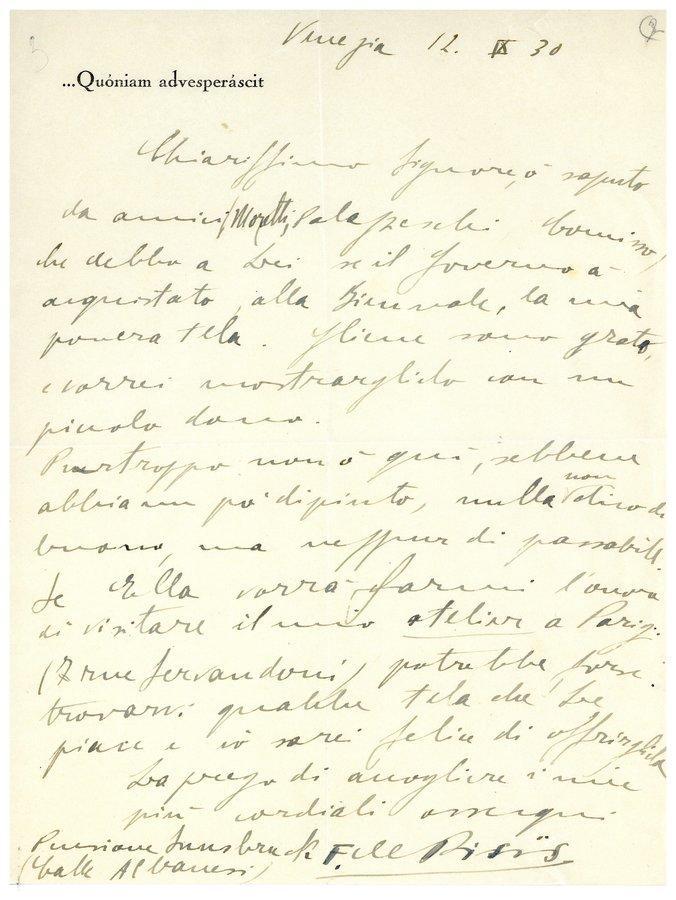 Venezia 12. IX 30
...Quóniam advesperáscit
Chiarissimo Signore, ò saputo
da amici (Moretti, Palazzeschi, Comisso)
che debbo a Lei se il Governo à
acquistato, alla Biennale, la mia
povera tela. Gliene sono grato,
e vorrei mostrarglielo con un
piccolo dono.
Purtroppo non ò qui, sebbene
abbia un po' dipinto, nulla non dico di
buono, ma neppur di passabile.
Se Ella vorrà farmi l'onore
di visitare il mio atelier a Parigi
(7 rue Servandoni) potrebbe forse
trovarvi qualche tela che Le
piace e io sarei felice di offrirgliela
La prego di accogliere i miei
più cordiali ossequi
F. de Pisis
Pensione Innsbruck
(Calle Albanesi)